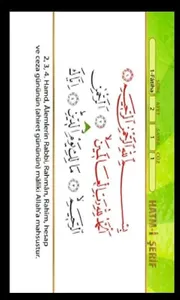 HATM-İ ŞERİF
1-Fatiha 2 1 1
بِسْمِ اللّٰهِ الرَّحْمٰنِ الرَّحِيمِ
اَلْحَمْدُ لِلّٰهِ رَبِّ الْعَالَمِينَ اَلرَّحْمٰنِ
الرَّحِيمِ مَالِكِ يَوْمِ الدِّينِ اِيَّاكَ
2, 3, 4. Hamd, Âlemlerin Rabbi, Rahmân, Rahîm, hesap
ve ceza gününün (ahiret gününün) mâliki Allah'a mahsustur.